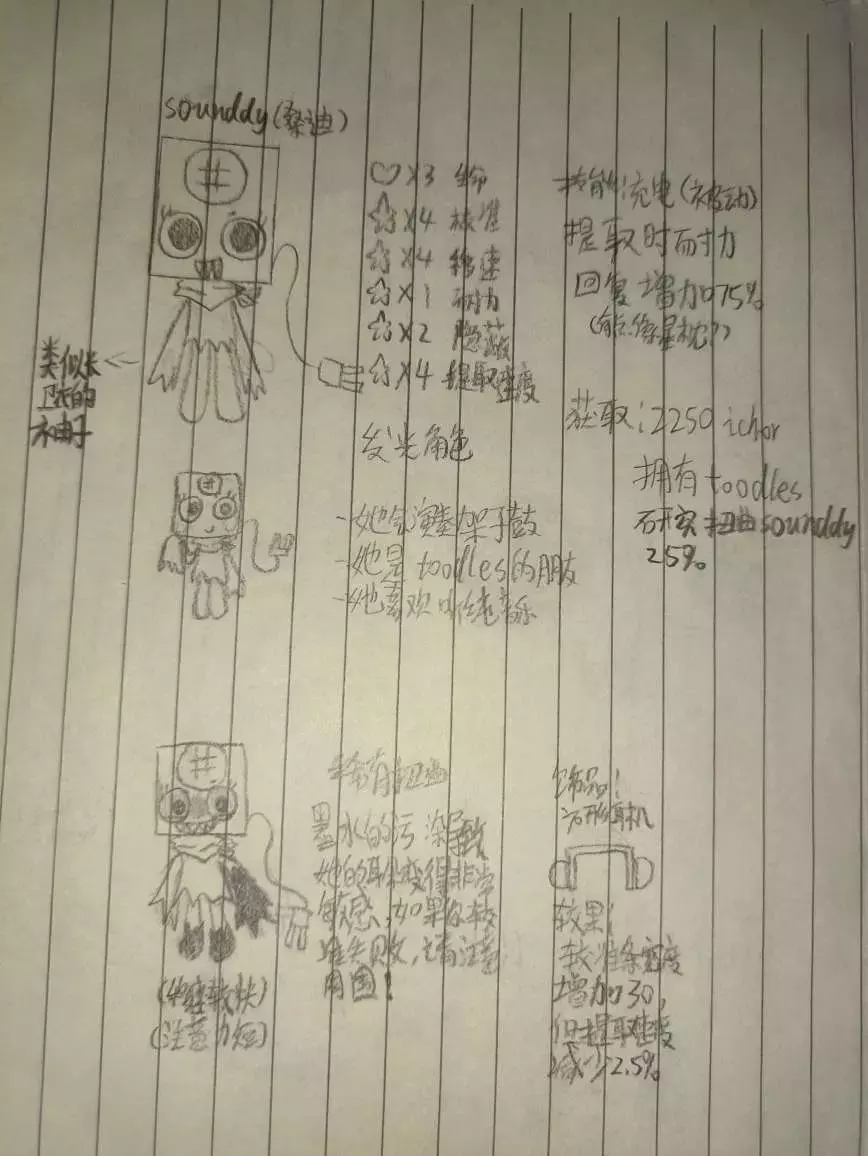 sounddy(桑迪)
#
♡×3 生命
☆×4 校准
☆×4 移速
☆×1 耐力
☆×2 隐蔽
☆×4 提取速度
技能:充电(被动)
提取时耐力
回复增加75%
(有点像星枕?)
类似长
卫衣的
袖子
发光角色
获取:2250 ichor
拥有toodles
研究扭曲sounddy
25%
#
-她会演奏架子鼓
-她是toodles的朋友
-她喜欢听纯音乐
#
稀有扭曲
墨水的污染导致
她的耳朵变得非常
敏感,如果你校
准失败,请注意
周围!
(她速较快)
(注意力短)
饰品:
耳机
效果:
校准条宽度
增加30,
但提取速度
减少2.5%